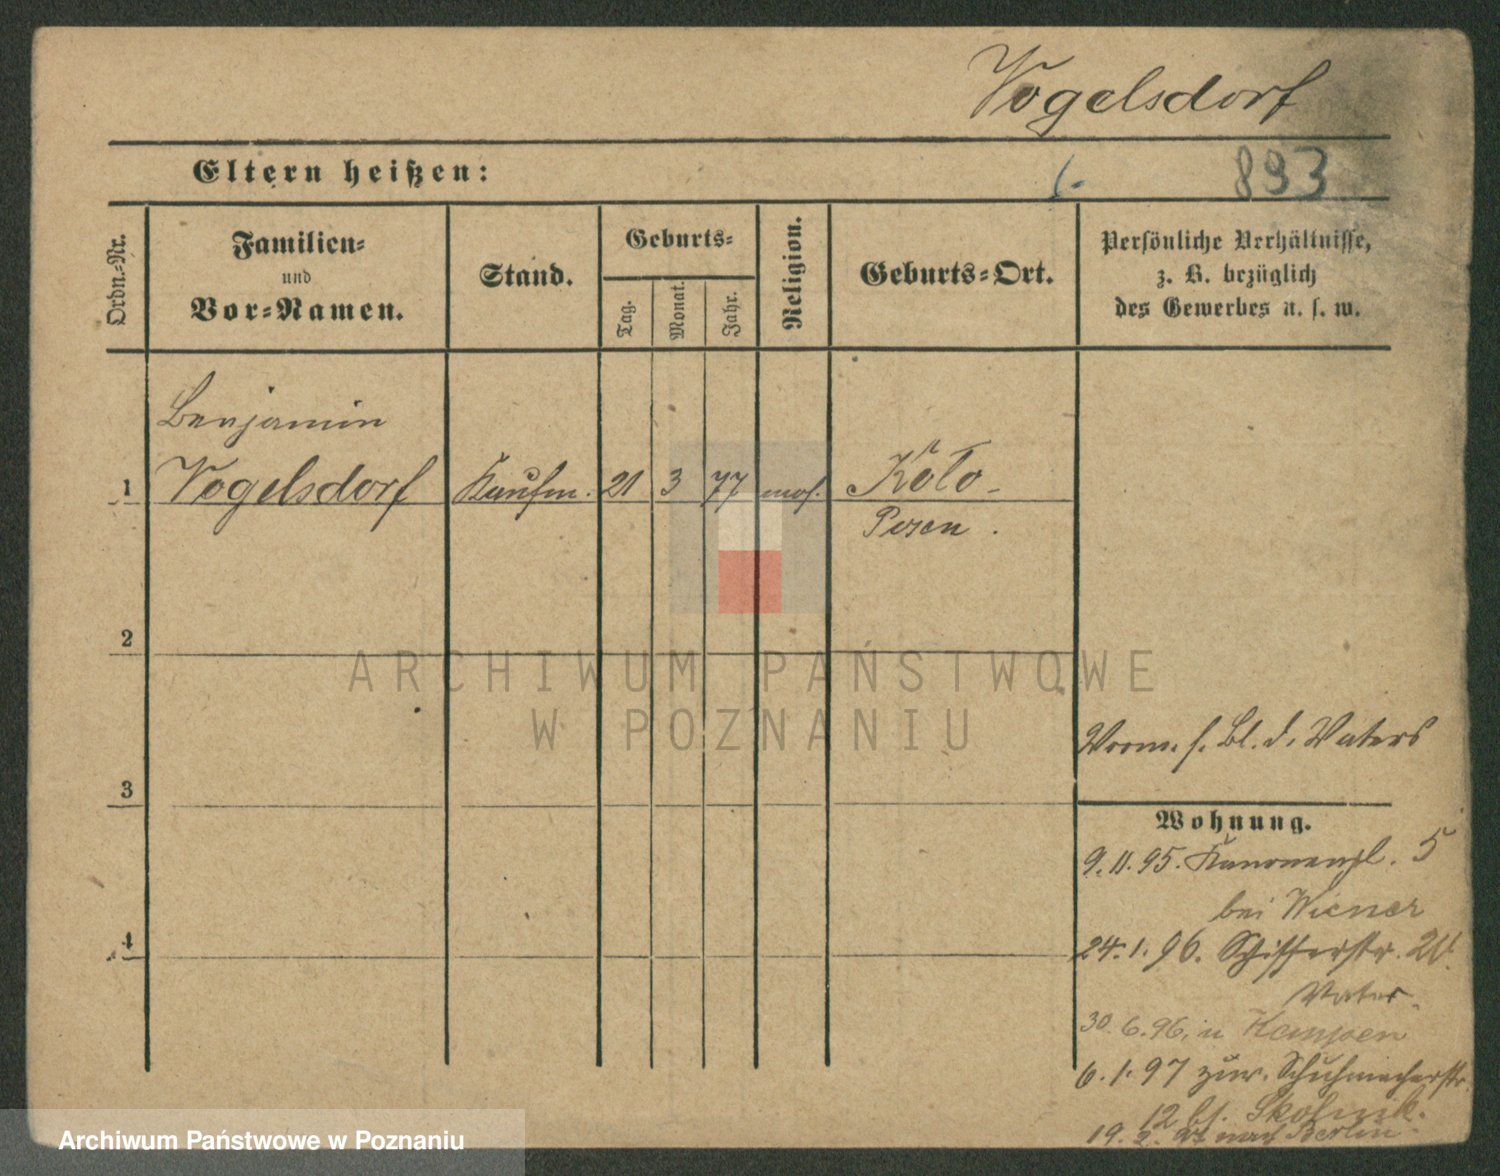 Vogelsdorf
Eltern heißen:
893
Ordn.-Nr.
Familien-
und
Vor-Namen.
Stand.
Geburts-
Tag.
Monat.
Jahr.
Religion.
Geburts-Ort.
Persönliche Verhältnisse,
z. B. bezüglich
des Gewerbes u. s. w.
Benjamin
1 Vogelsdorf Kaufm. 21 3 77 mos. Koło -
Posen.
2
ARCHIWUM PAŃSTWOWE
W POZNANIU
Vorm. s. Bl. d. Vaters
3
Wohnung.
9.11.95. Kanonenpl. 5
bei Wiener
4
24.1.96. Schifferstr. 20
Vater.
30.6.96. n Kempen
6.1.97 zur. Schuhmacherstr.
12 bei Skolnik.
19. 2. 97 nach Berlin.
Archiwum Państwowe w Poznaniu